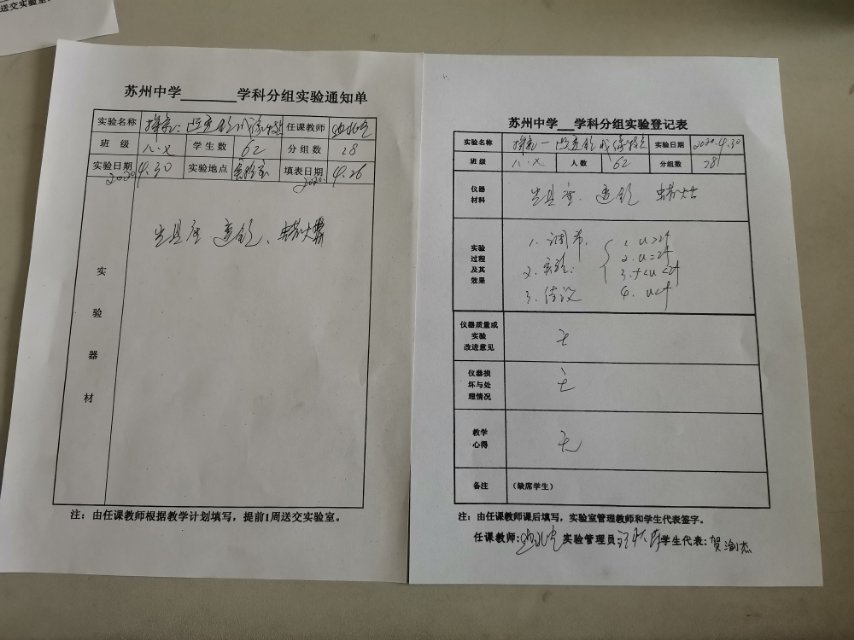 送交实验室
苏州中学______学科分组实验通知单
实验名称 探究:凸透镜成像特点 任课教师
班 级 八.X 学生数 62 分组数 28
实验日期 2020 4.30 实验地点 实验室 填表日期 2020 4.26
实验器材
光具座 透镜、蜡烛
注:由任课教师根据教学计划填写,提前1周送交实验室。
苏州中学___学科分组实验登记表
实验名称 探究一凸透镜成像特点 实验日期 2020.4.30
班 级 八.X 人 数 62 分组数 28
仪器材料 光具座、透镜 蜡烛
实验过程及其效果
1.调节
2.实验:
3.结论
1.u>2f
2.u=2f
3.f<u<2f
4.u<f
仪器质量或实验改进意见 无
仪器损坏与处理情况 无
教学心得 无
备注 (缺席学生)
注:由任课教师课后填写,实验室管理教师和学生代表签字。
任课教师: 实验管理员 学生代表:贺